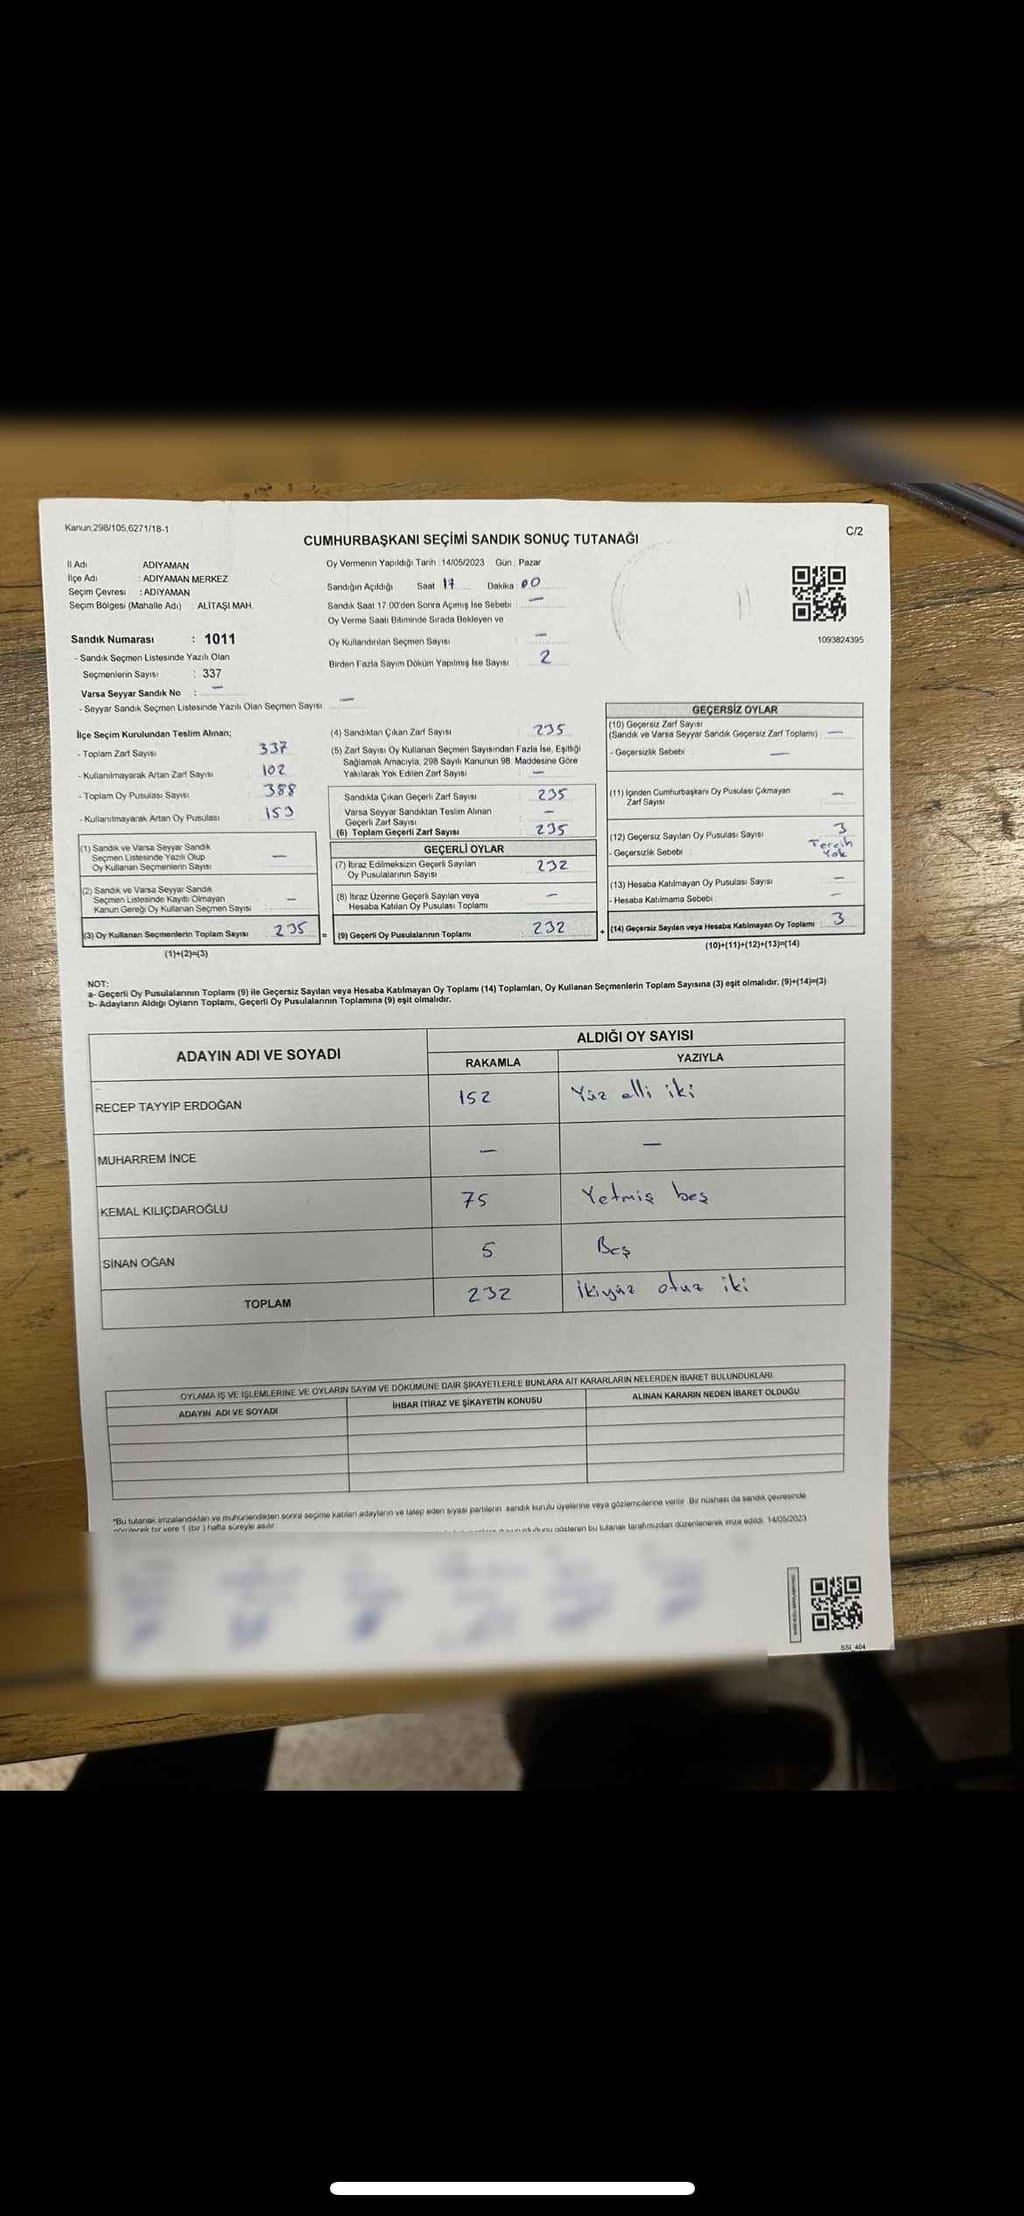 Kanun;298/105,6271/18-1
C/2
CUMHURBAŞKANI SEÇİMİ SANDIK SONUÇ TUTANAĞI
İl Adı ADIYAMAN
İlçe Adı : ADIYAMAN MERKEZ
Seçim Çevresi : ADIYAMAN
Seçim Bölgesi (Mahalle Adı) : ALİTAŞI MAH.
Sandık Numarası : 1011
- Sandık Seçmen Listesinde Yazılı Olan
Seçmenlerin Sayısı : 337
Varsa Seyyar Sandık No : —
- Seyyar Sandık Seçmen Listesinde Yazılı Olan Seçmen Sayısı —
Oy Vermenin Yapıldığı Tarih : 14/05/2023 Gün : Pazar
Sandığın Açıldığı Saat 17 Dakika : 00
Sandık Saat 17:00'den Sonra Açılmış İse Sebebi : —
Oy Verme Saati Bitiminde Sırada Bekleyen ve
Oy Kullandırılan Seçmen Sayısı : —
Birden Fazla Sayım Döküm Yapılmış İse Sayısı : 2
1093824395
İlçe Seçim Kurulundan Teslim Alınan;
- Toplam Zarf Sayısı 337
- Kullanılmayarak Artan Zarf Sayısı 102
- Toplam Oy Pusulası Sayısı 388
- Kullanılmayarak Artan Oy Pusulası 153
(1) Sandık ve Varsa Seyyar Sandık
Seçmen Listesinde Yazılı Olup
Oy Kullanan Seçmenlerin Sayısı —
(2) Sandık ve Varsa Seyyar Sandık
Seçmen Listesinde Kayıtlı Olmayan
Kanun Gereği Oy Kullanan Seçmen Sayısı —
(3) Oy Kullanan Seçmenlerin Toplam Sayısı 235
(1)+(2)=(3)
(4) Sandıktan Çıkan Zarf Sayısı : 235
(5) Zarf Sayısı Oy Kullanan Seçmen Sayısından Fazla İse, Eşitliği
Sağlamak Amacıyla, 298 Sayılı Kanunun 98. Maddesine Göre
Yakılarak Yok Edilen Zarf Sayısı : —
Sandıkta Çıkan Geçerli Zarf Sayısı : 235
Varsa Seyyar Sandıktan Teslim Alınan
Geçerli Zarf Sayısı : —
(6) Toplam Geçerli Zarf Sayısı : 235
GEÇERLİ OYLAR
(7) İtiraz Edilmeksizin Geçerli Sayılan
Oy Pusulalarının Sayısı : 232
(8) İtiraz Üzerine Geçerli Sayılan veya
Hesaba Katılan Oy Pusulası Toplamı : —
= (9) Geçerli Oy Pusulalarının Toplamı : 232
GEÇERSİZ OYLAR
(10) Geçersiz Zarf Sayısı
(Sandık ve Varsa Seyyar Sandık Geçersiz Zarf Toplamı) : —
- Geçersizlik Sebebi : —
(11) İçinden Cumhurbaşkanı Oy Pusulası Çıkmayan
Zarf Sayısı : —
(12) Geçersiz Sayılan Oy Pusulası Sayısı : 3
- Geçersizlik Sebebi : Tercih
Yok
(13) Hesaba Katılmayan Oy Pusulası Sayısı : —
- Hesaba Katılmama Sebebi : —
+ (14) Geçersiz Sayılan veya Hesaba Katılmayan Oy Toplamı : 3
(10)+(11)+(12)+(13)=(14)
NOT:
a- Geçerli Oy Pusulalarının Toplamı (9) ile Geçersiz Sayılan veya Hesaba Katılmayan Oy Toplamı (14) Toplamları, Oy Kullanan Seçmenlerin Toplam Sayısına (3) eşit olmalıdır. (9)+(14)=(3)
b- Adayların Aldığı Oyların Toplamı, Geçerli Oy Pusulalarının Toplamına (9) eşit olmalıdır.
ADAYIN ADI VE SOYADI
ALDIĞI OY SAYISI
RAKAMLA YAZIYLA
RECEP TAYYİP ERDOĞAN 152 Yüz elli iki
MUHARREM İNCE — —
KEMAL KILIÇDAROĞLU 75 Yetmiş beş
SİNAN OĞAN 5 Beş
TOPLAM 232 İkiyüz otuz iki
OYLAMA İŞ VE İŞLEMLERİNE VE OYLARIN SAYIM VE DÖKÜMÜNE DAİR ŞİKAYETLERLE BUNLARA AİT KARARLARIN NELERDEN İBARET BULUNDUKLARI
ADAYIN ADI VE SOYADI İHBAR İTİRAZ VE ŞİKAYETİN KONUSU ALINAN KARARIN NEDEN İBARET OLDUĞU
*Bu tutanak imzalandıktan ve mühürlendikten sonra seçime katılan adayların ve talep eden siyasi partilerin sandık kurulu üyelerine veya gözlemcilerine verilir. Bir nüshası da sandık çevresinde
görülecek bir yere 1 (bir) hafta süreyle asılır.
gösteren bu tutanak tarafımızdan düzenlenerek imza edildi. 14/05/2023
SSI_404